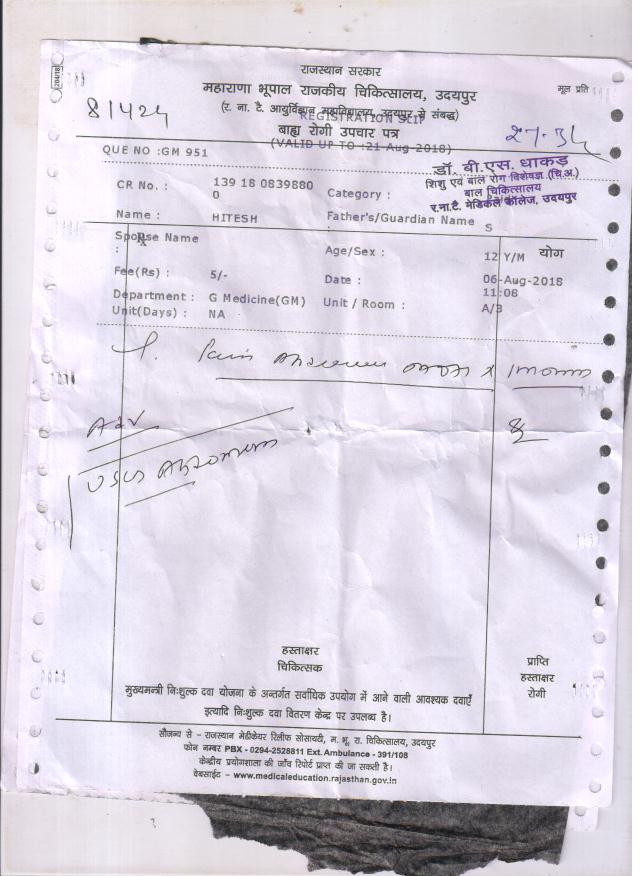 204/18
राजस्थान सरकार
महाराणा भूपाल राजकीय चिकित्सालय, उदयपुर
मूल प्रति
81424
(र. ना. टै. आयुर्विज्ञान महाविद्यालय, उदयपुर से संबद्ध)
REGISTRATION SLIP
बाह्य रोगी उपचार पत्र
27-34
(VALID UP TO :21 Aug-2018)
QUE NO :GM 951
डॉ. बी.एस. धाकड़
शिशु एवं बाल रोग विशेषज्ञ (चि.अ.)
बाल चिकित्सालय
र.ना.टै. मेडिकल कॉलेज, उदयपुर
CR No. : 139 18 0839880 0 Category :
Name : HITESH Father's/Guardian Name : S
Spouse Name : Age/Sex : 12 Y/M योग
Rx
Fee(Rs) : 5/- Date : 06-Aug-2018 11:08
Department : G Medicine(GM) Unit / Room : A/3
Unit(Days) : NA
Pain
Adv
USG Abdomen
हस्ताक्षर
चिकित्सक
प्राप्ति
हस्ताक्षर
रोगी
मुख्यमन्त्री निःशुल्क दवा योजना के अन्तर्गत सर्वाधिक उपयोग में आने वाली आवश्यक दवाएँ
इत्यादि निःशुल्क दवा वितरण केन्द्र पर उपलब्ध है।
सौजन्य से - राजस्थान मेडीकेयर रिलीफ सोसायटी, म. भू. रा. चिकित्सालय, उदयपुर
फोन नम्बर PBX - 0294-2528811 Ext. Ambulance - 391/108
केन्द्रीय प्रयोगशाला की जाँच रिपोर्ट प्राप्त की जा सकती है।
वेबसाईट - www.medicaleducation.rajasthan.gov.in